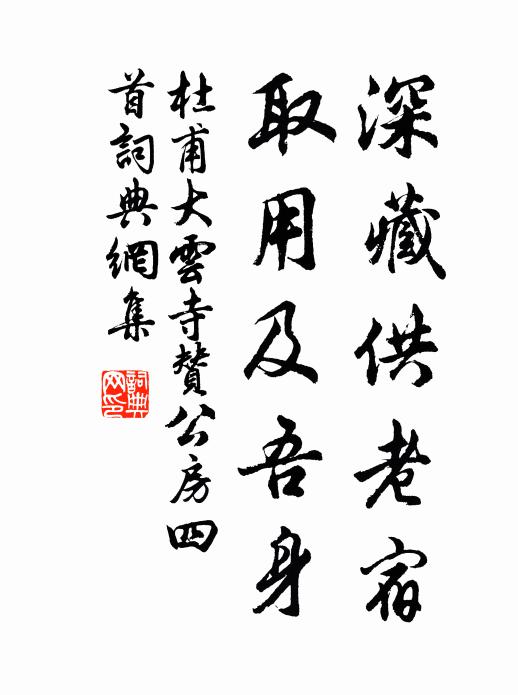 深藏供老宿
取用及吾身
杜甫大雲寺贊公房四
首詞典網集
詞典
网印